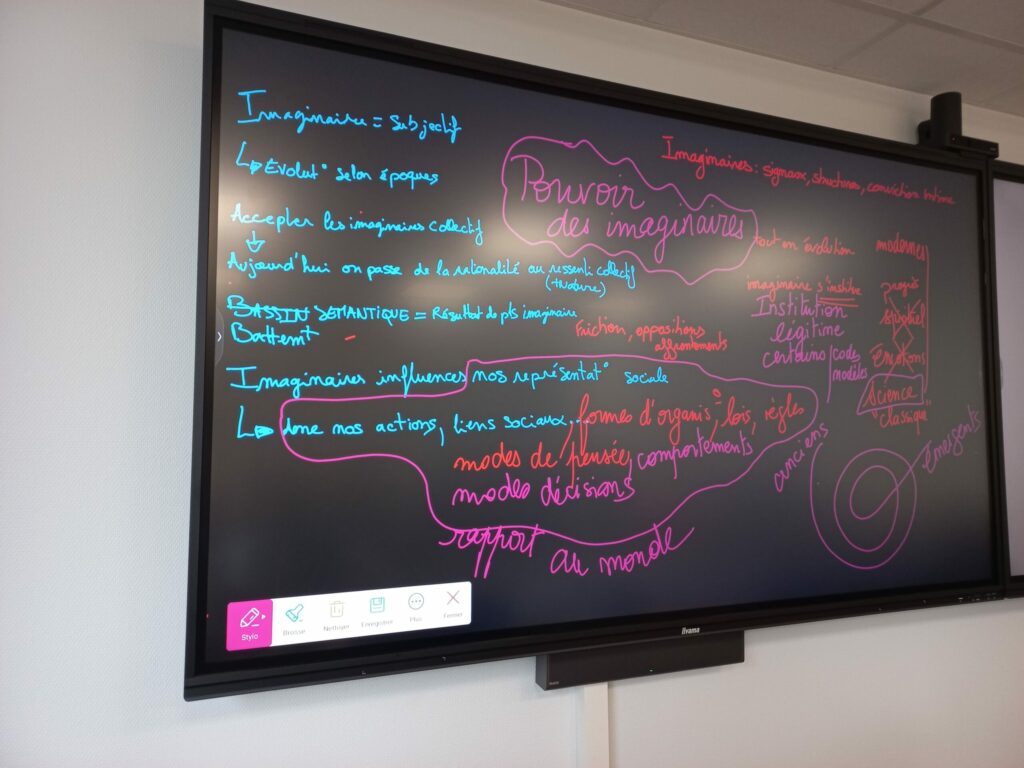 Imaginaire = subjectif
↳ Évolut° selon époques
Accepter les imaginaires collectif
↓
Aujourd'hui on passe de la rationalité au ressenti collectif
(+nature)
BASSIN SÉMANTIQUE = Résultat de pls imaginaire
Battemt
Imaginaires influences nos représentat° sociale
↳ donc nos actions, liens sociaux...
Pouvoir
des imaginaires
Imaginaires : signaux, structures, conviction intime
tout en évolution
imaginaire s'institue
Institution
légitime
certains/code
modèles
Friction, oppositions
affrontements
formes d'organis°, lois, règles
modes de pensée, comportements
modes décisions
rapport au monde
modernes
progrès
Émotions
science
"classique"
anciens
émergents
Stylo
Brosse
Nettoyer
Enregistrer
Plus
Fermer
iiyama